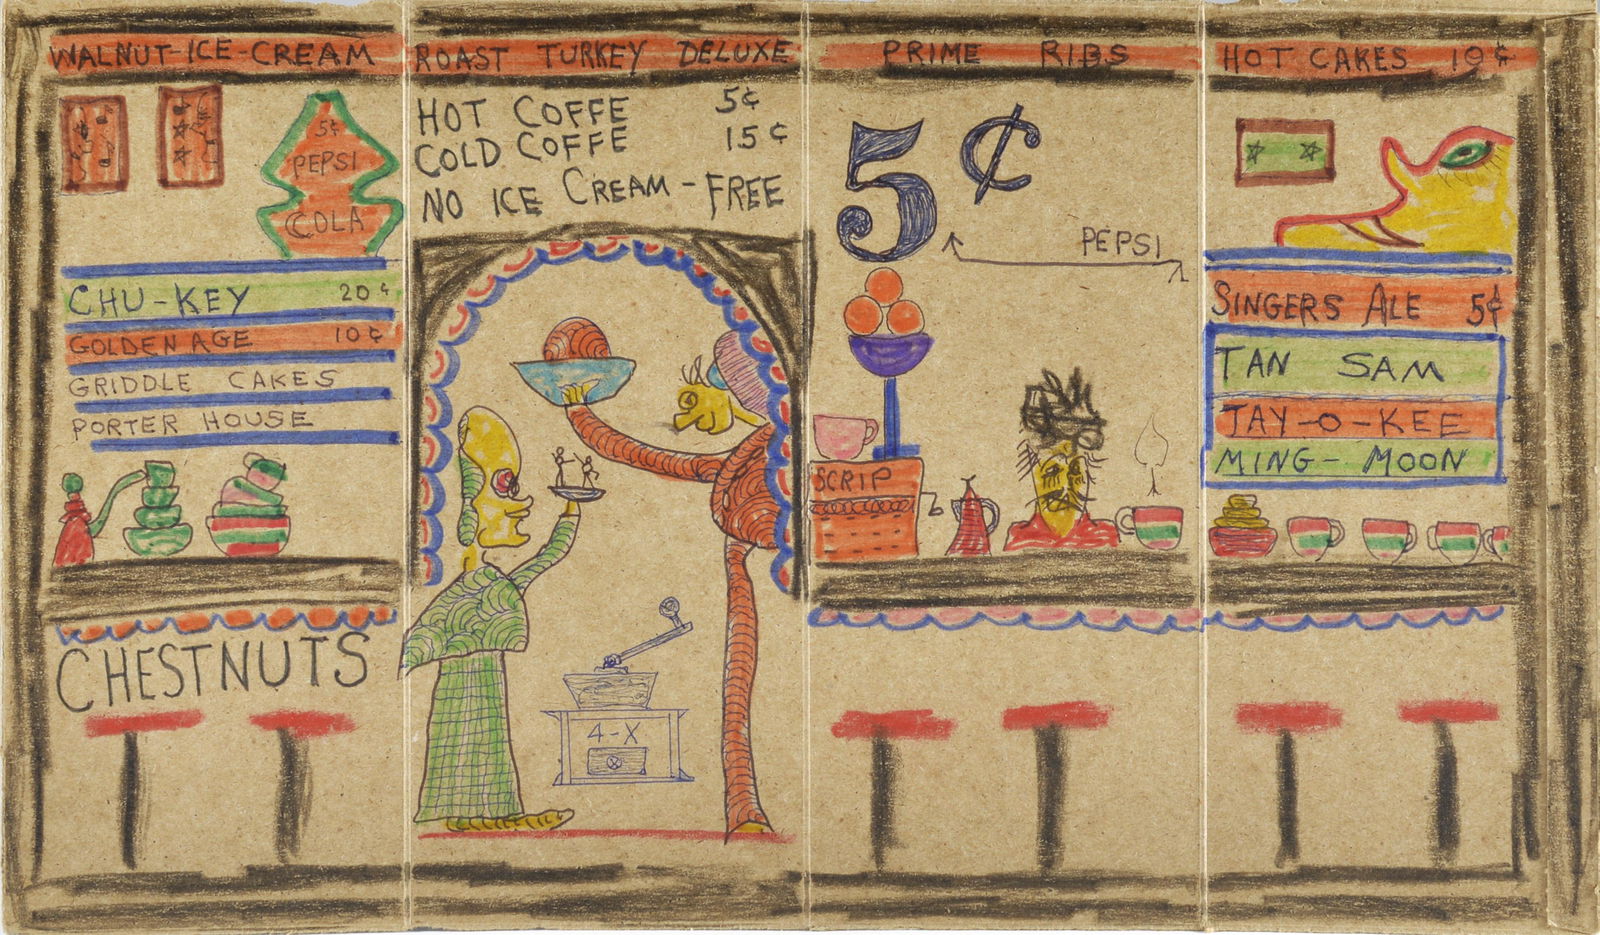 WALNUT-ICE-CREAM
5¢
PEPSI
COLA
CHU-KEY 20¢
GOLDEN AGE 10¢
GRIDDLE CAKES
PORTER HOUSE
CHESTNUTS
ROAST TURKEY DELUXE
HOT COFFE 5¢
COLD COFFE 15¢
NO ICE CREAM - FREE
4-X
PRIME RIBS
5¢
PEPSI
SCRIP
HOT CAKES 10¢
SINGERS ALE 5¢
TAN SAM
JAY-O-KEE
MING-MOON